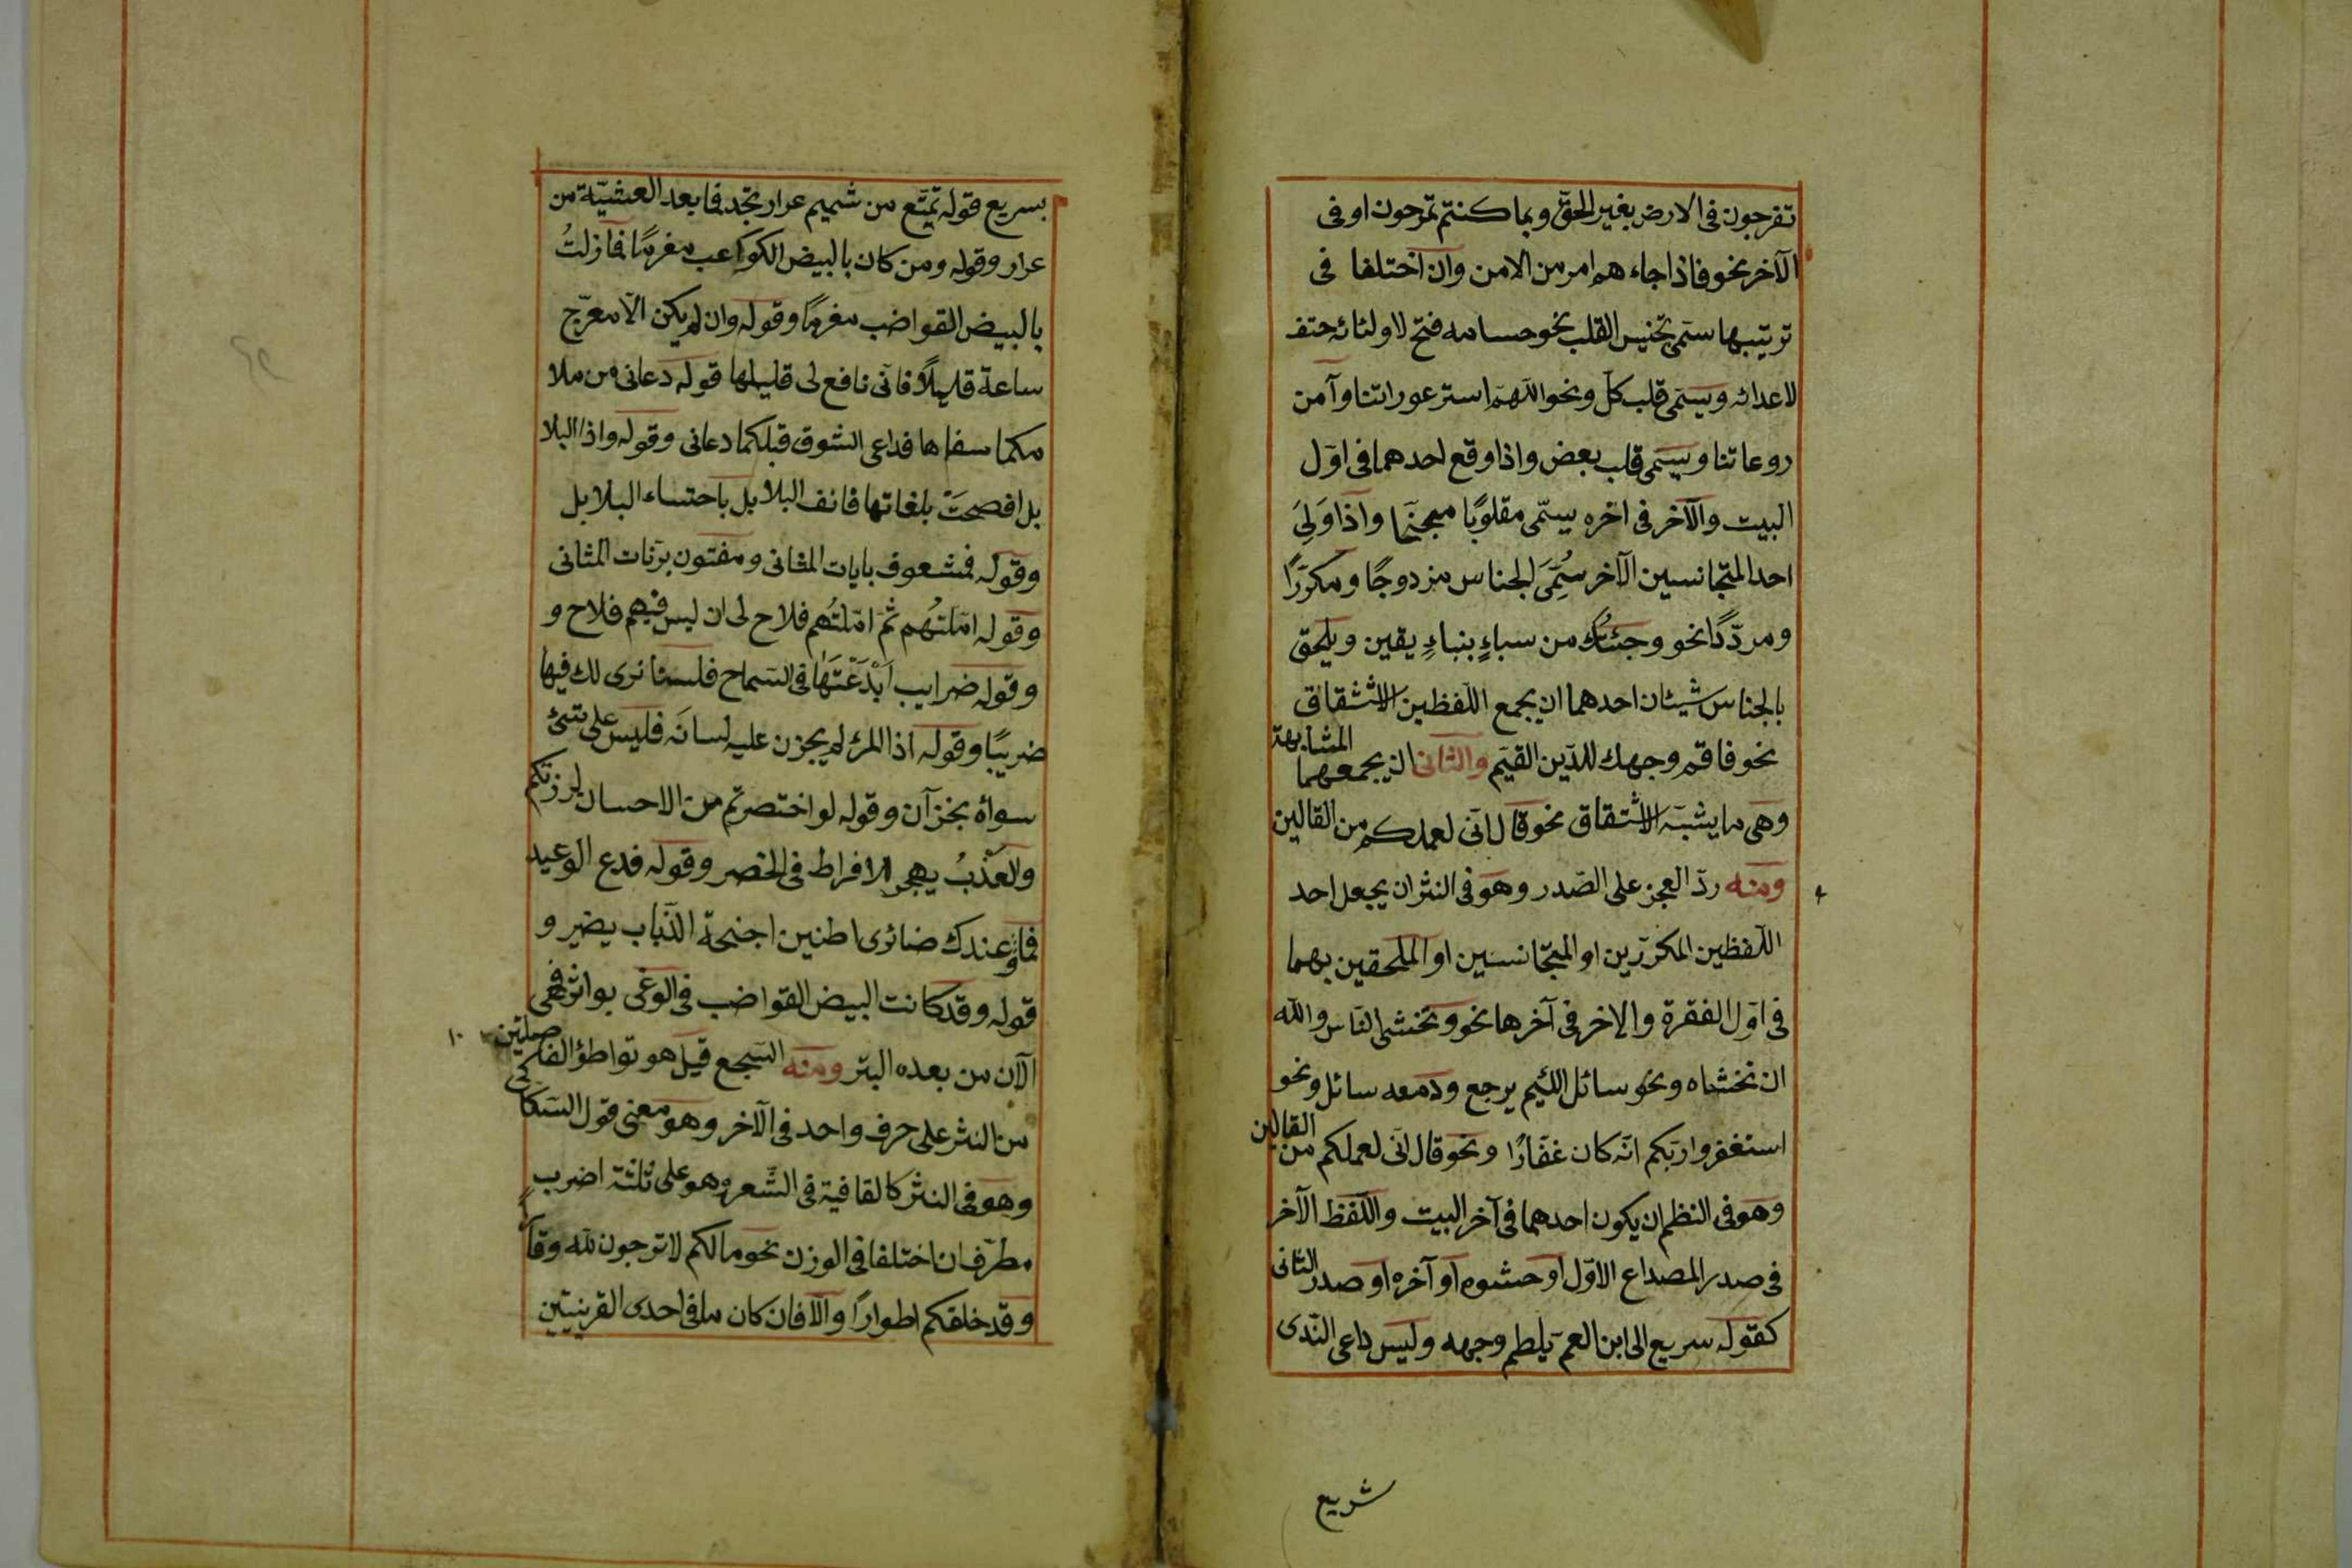 تفرجون فى الارض بغير الحقّ وبما كنتم تمرحون او فى
الآخر نحو فاذا جاء هم امر من الامن وان اختلفا فى
ترتيبها سمّى تجنيس القلب نحو حسامه فتح لاوليائه حتف
لاعدائه ويسمّى قلب كلّ ونحو اللّهمّ استر عوراتنا وآمن
روعاتنا ويسمّى قلب بعض واذا وقع احدهما فى اوّل
البيت والآخر فى اخره يسمّى مقلوبًا مجنّحا واذا وَلِىَ
احد المتجانسين الآخر سُمِّىَ الجناس مزدوجًا ومكرّرًا
ومردّدًا نحو وجئتك من سباءٍ بنباءٍ يقين ويلحق
بالجناس شيئان احدهما ان يجمع اللّفظين الاشتقاق
نحو فاقم وجهك للدّين القيّم والثانى ان يجمعهما المشابهة
وهى ما يشبه الاشتقاق نحو قال انّى لعملكم من القالين
ومنه ردّ العجز على الصّدر وهو فى النثر ان يجعل احد
اللّفظين المكرّرين او المتجانسين او الملحقين بهما
فى اوّل الفقرة والاخر فى آخرها نحو وتخشى النّاس والله
ان تخشاه ونحو سائل اللّئيم يرجع ودمعه سائل ونحو
استغفروا ربّكم انّه كان غفّارًا ونحو قال انّى لعملكم من القالين
وهو فى النظم ان يكون احدهما فى آخر البيت واللّفظ الآخر
فى صدر المصداع الاوّل او حشوه او آخره او صدر الثانى
كقوله سريع الى ابن العمّ يلطم وجهه وليس داعى النّدى
شريع
بسريع قوله تمتّع من شميم عرار نجد فما بعد العشيّة من
عرار وقوله ومن كان بالبيض الكواعب مغرمًا فمازلتُ
بالبيض القواضب مغرمًا وقوله وان لم يكن الّا معرّج
ساعة قليلًا فانّى نافع لى قليلها قوله دعانى من ملا
مكما سفاها فداعى الشوق قبلكما دعانى وقوله واذا البلا
بل افصحَتْ بلغاتها فانف البلابل باحتساء البلابل
وقوله فمشعوف بايات المثانى ومفتون برنّات المثانى
وقوله امّلتُهم ثمّ امّلتُهم فلاح لى ان ليس فيهم فلاح و
وقوله ضرايب اَبْدَعْتَها فى السّماح فلسنا نرى لك فيها
ضريبًا وقوله اذا المرئ لم يخزن عليه لسانَه فليس على شئ
سواه بخزّان وقوله لو اختصرتم من الاحسان لزرتكم
والعَذْبُ يهجر للافراط فى الخصر وقوله فدع الوعيد
فما وعيدك ضائرى اطنين اجنحة الذّباب يضير و
قوله وقد كانت البيض القواضب فى الوغى بواتر فهى
الآن من بعده البتر ومنه السّجع قيل هو تواطؤ الفاصلتين
من النثر على حرف واحد فى الآخر وهو معنى قول السّكاكى
وهو فى النثر كالقافية فى الشّعر وهو على ثلثة اضرب
مطرّف ان اختلفا فى الوزن نحو مالكم لا ترجون لله وقارًا
وقد خلقكم اطوارًا والّا فان كان ما فى احدى القرينتين